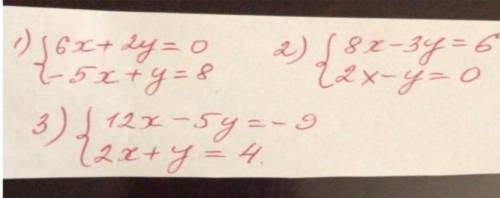 1) { 6x + 2y = 0
-5x + y = 8
2) { 8x - 3y = 6
2x - y = 0
3) { 12x - 5y = -9
2x + y = 4.